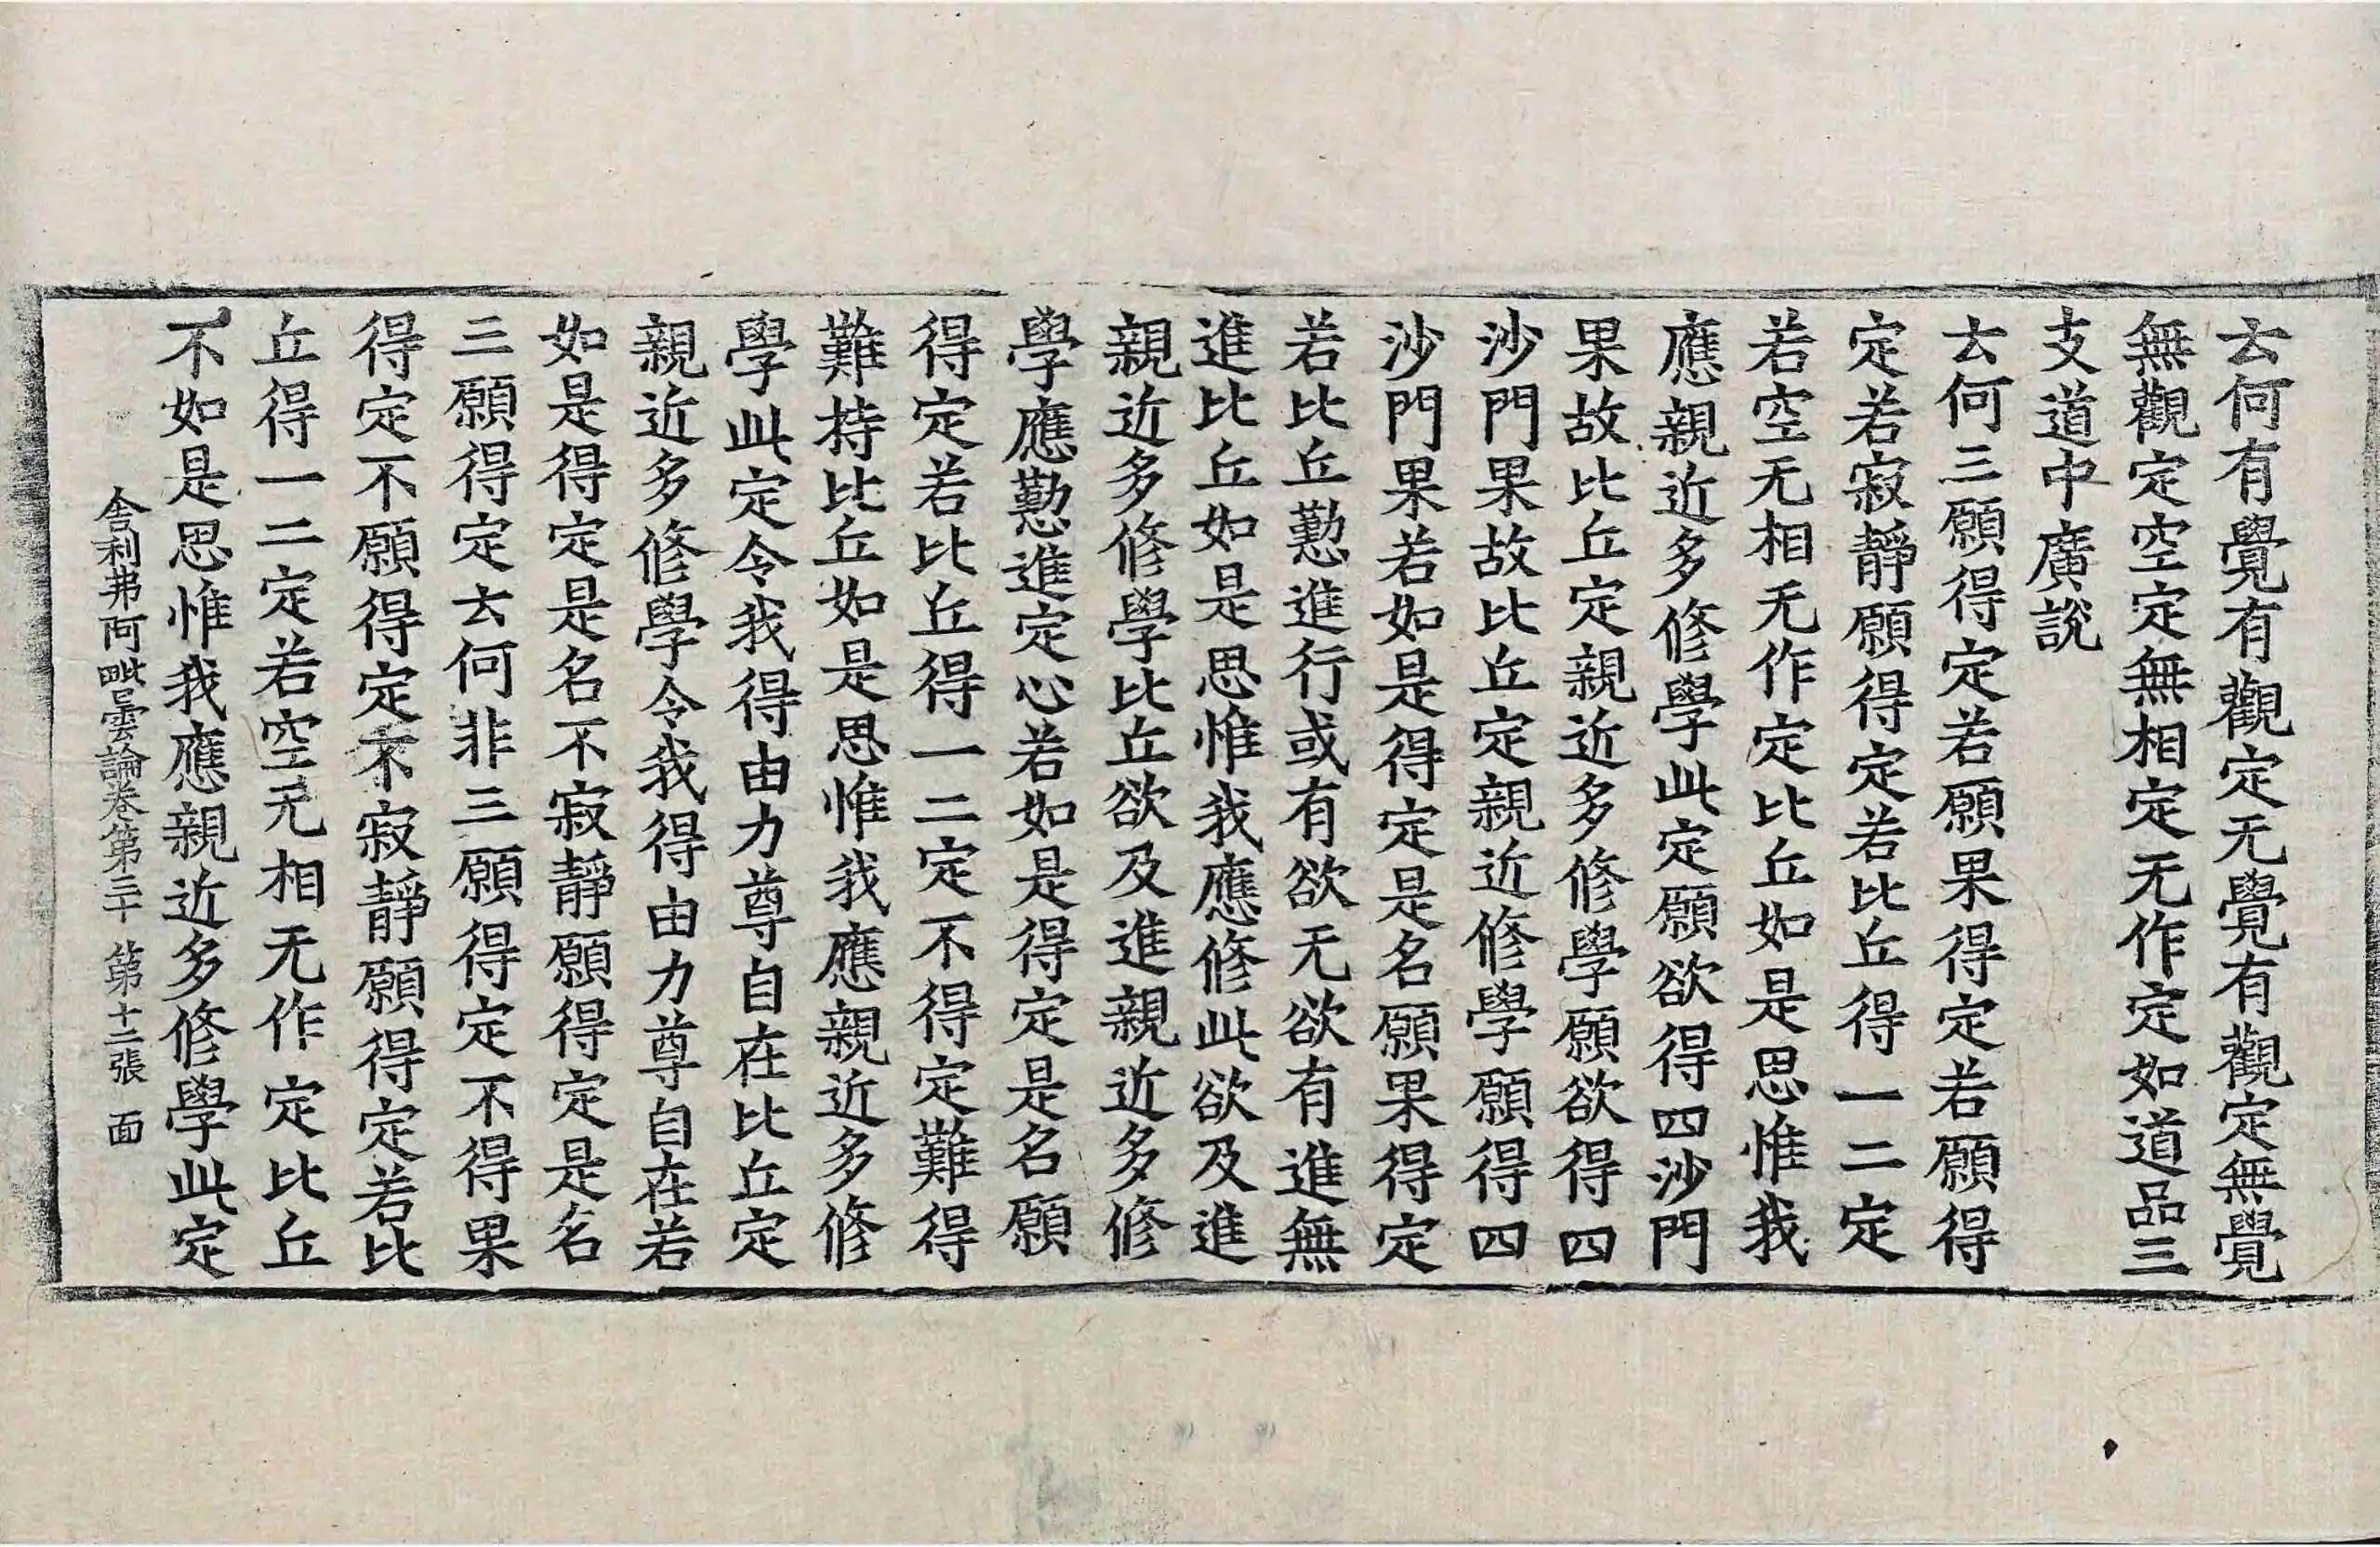 云何有覺有觀定无覺有觀定無覺
無觀定空定無相定无作定如道品三
支道中廣說
云何三願得定若願果得定若願得
定若寂靜願得定若比丘得一二定
若空无相无作定比丘如是思惟我
應親近多修學此定願欲得四沙門
果故比丘定親近多修學願欲得四
沙門果故比丘定親近修學願得四
沙門果若如是得定是名願果得定
若比丘懃進行或有欲无欲有進無
進比丘如是思惟我應修此欲及進
親近多修學比丘欲及進親近多修
學應懃進定心若如是得定是名願
得定若比丘得一二定不得定難得
難持比丘如是思惟我應親近多修
學此定令我得由力尊自在比丘定
親近多修學令我得由力尊自在若
如是得定是名不寂靜願得定是名
三願得定云何非三願得定不得果
得定不願得定不寂靜願得定若比
丘得一二定若空无相无作定比丘
不如是思惟我應親近多修學此定
舍利弗阿毗曇論卷第三十 第十二張 面